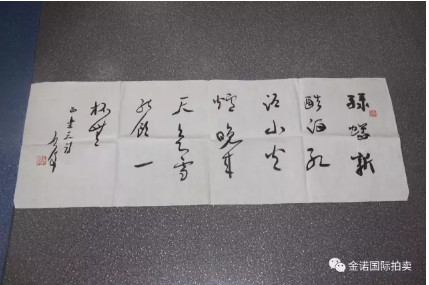 绿蟻新
醅酒红
泥小火
爐晚来
天欲雪
能饮一
杯無
金诺国际拍卖